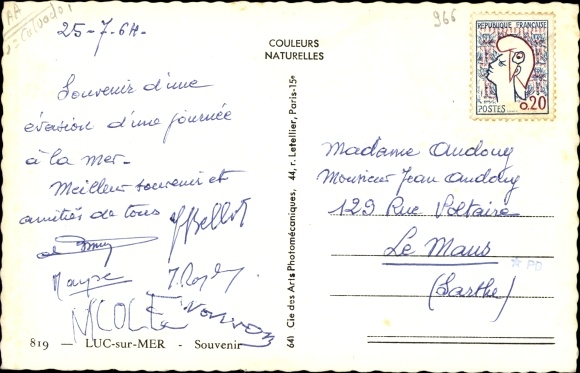 Calvados
25-7-64-
Souvenir d'une
évasion d'une journée
à la mer-
Meilleur souvenir et
amitiés de tous
J Bellot
NICOLE
819 — LUC-sur-MER - Souvenir
COULEURS
NATURELLES
641 Cie des Arts Photomécaniques, 44, r. Letellier, Paris-15e
966
REPUBLIQUE FRANÇAISE
0.20
POSTES
Madame Audouy
Monsieur Jean Audouy
129 Rue Voltaire
Le Mans
* PD
(Sarthe)